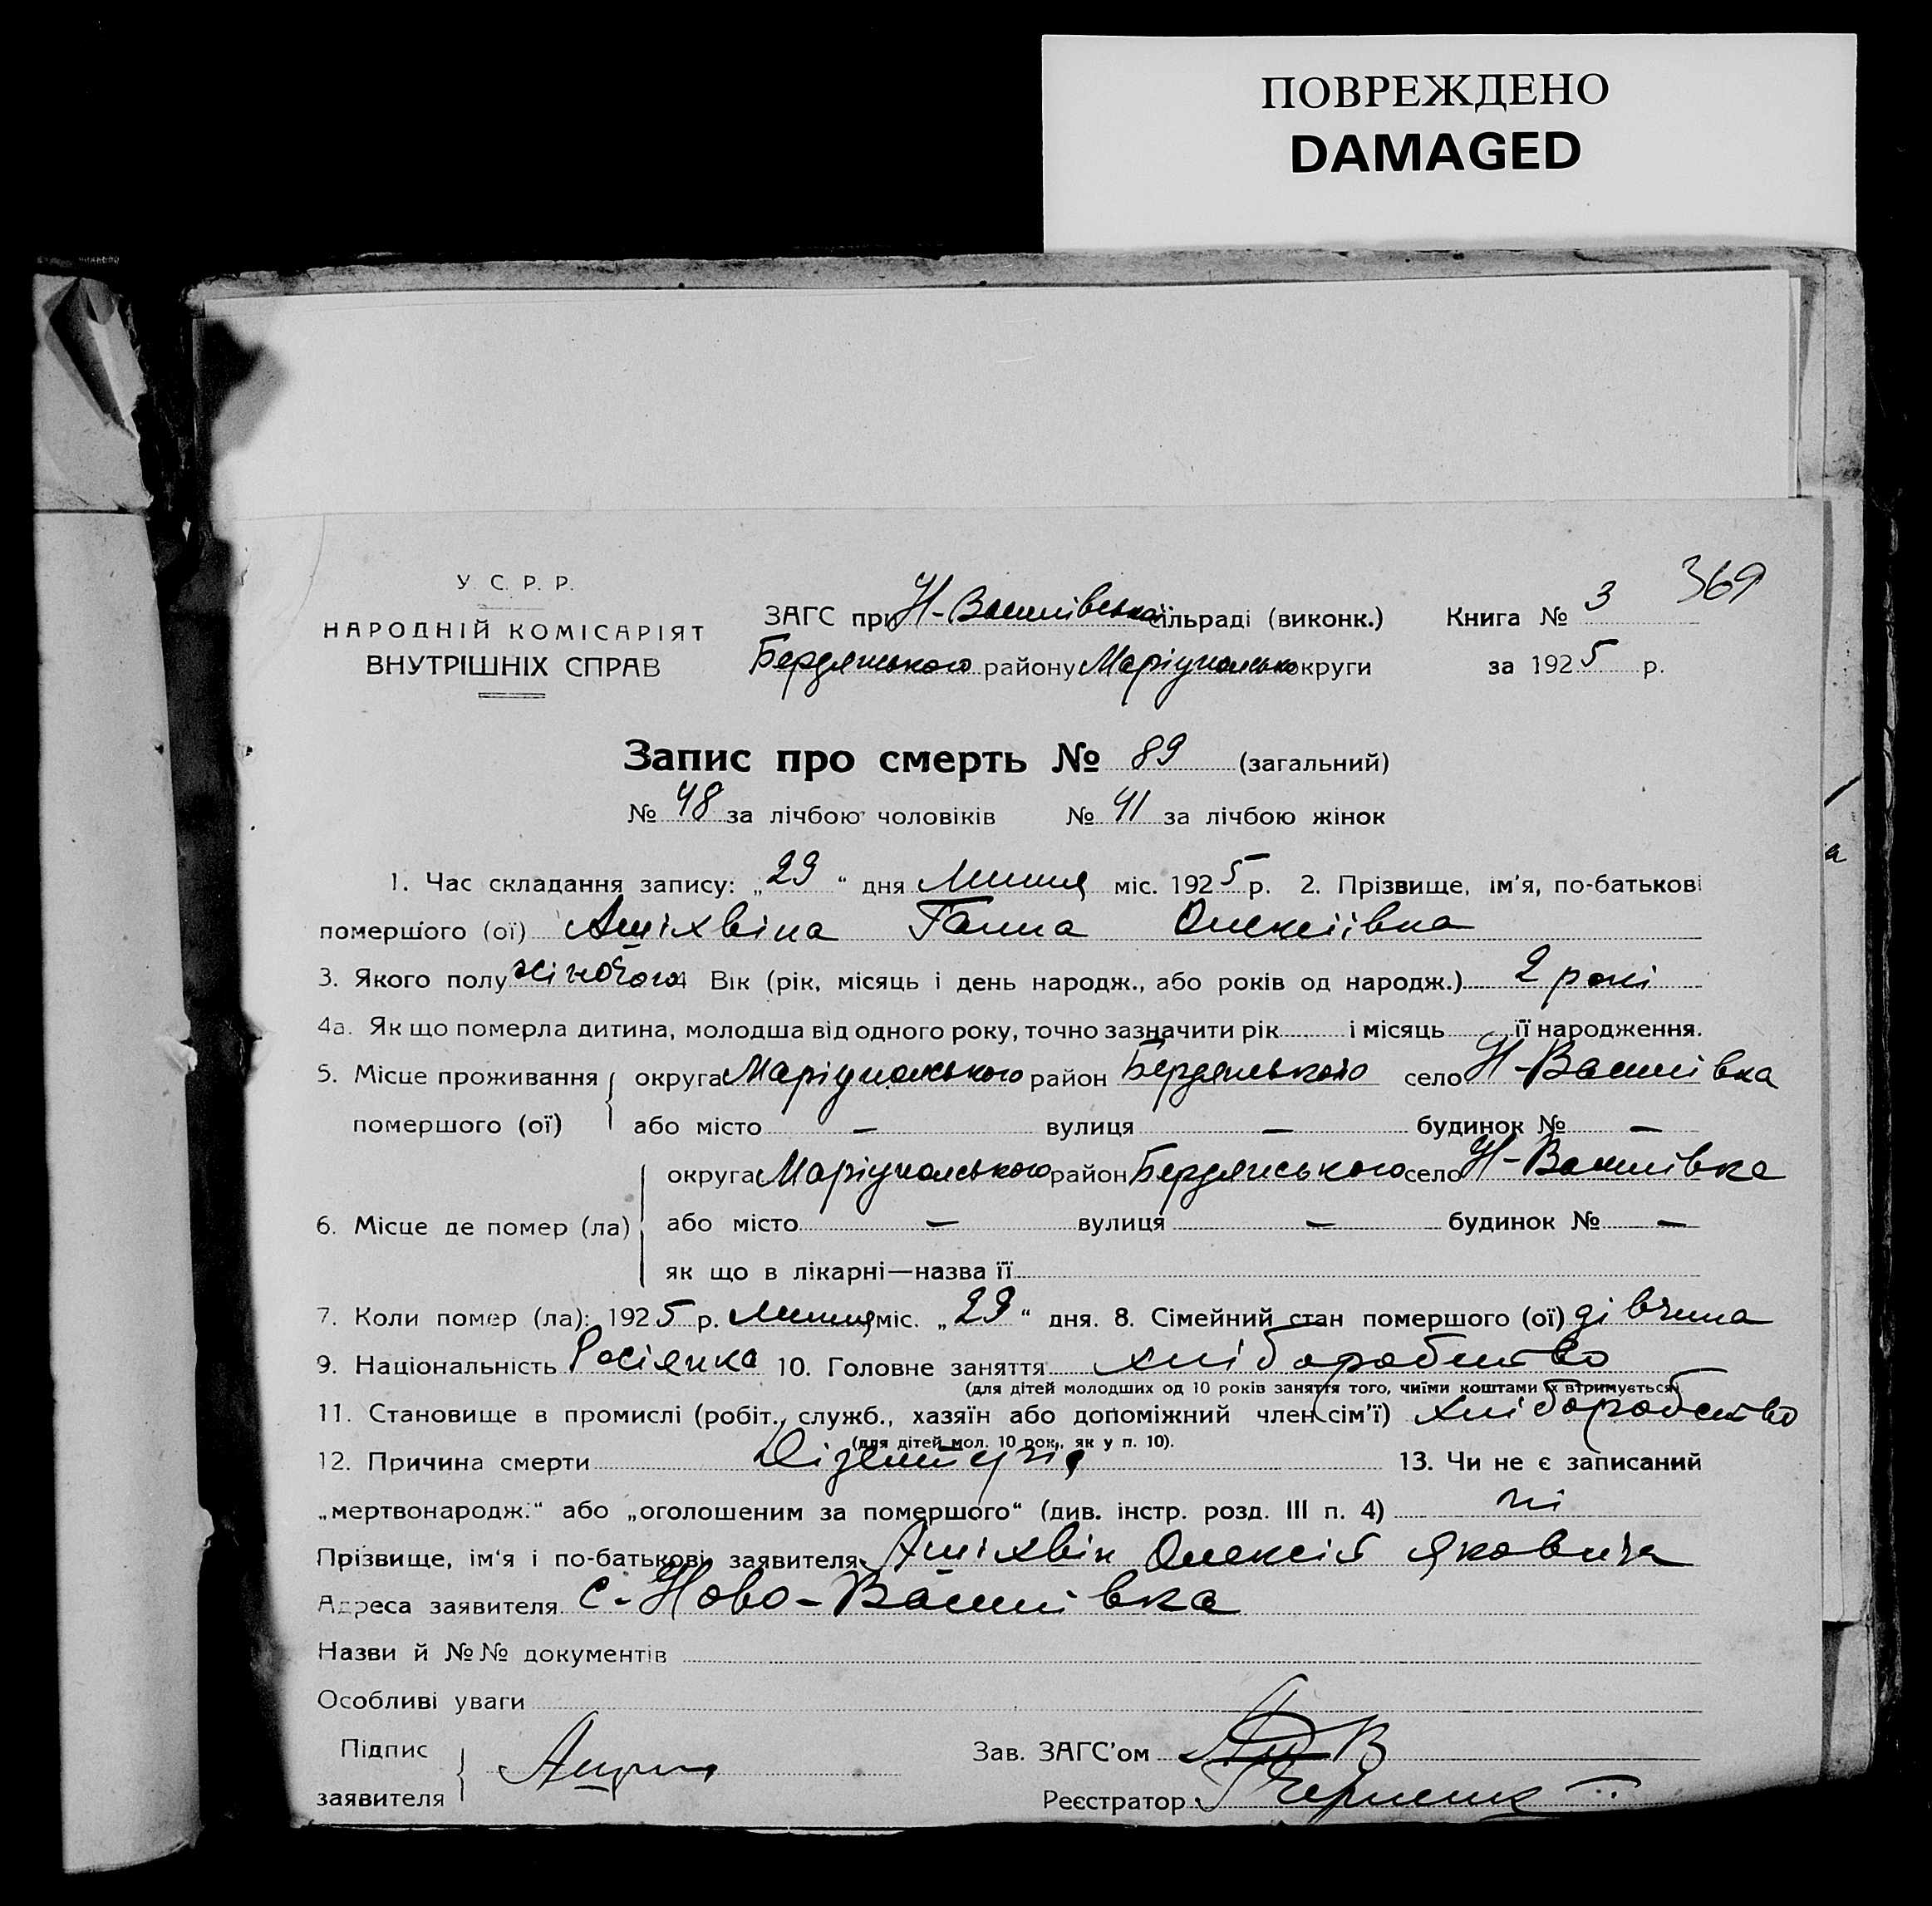 ПОВРЕЖДЕНО
DAMAGED
369
У. С. Р. Р.
НАРОДНІЙ КОМІСАРІЯТ
ВНУТРІШНІХ СПРАВ
ЗАГС при Н-Василівська сільраді (виконк.) Книга № 3
Бердянського району Маріупольсько округи за 1925 р.
Запис про смерть № 89 (загальний)
№ 48 за лічбою чоловіків № 41 за лічбою жінок
1. Час складання запису: „29“ дня Липня міс. 1925 р. 2. Прізвище, ім'я, по-батькові
помершого (ої) Ашіхвіна Ганна Олексіївна
3. Якого полу жіночого 4 Вік (рік, місяць і день народж., або років од народж.) 2 рокі
4а. Як що померла дитина, молодша від одного року, точно зазначити рік і місяць її народження.
5. Місце проживання округа Маріупольського район Бердянського село Н-Василівка
помершого (ої) або місто — вулиця — будинок № —
округа Маріупольського район Бердянського село Н-Василівка
6. Місце де помер (ла) або місто — вулиця — будинок № —
як що в лікарні—назва її
7. Коли помер (ла): 1925 р. Липня міс. „29“ дня. 8. Сімейний стан помершого (ої) дівчина
9. Національність Росіянка 10. Головне заняття хліборобство
(для дітей молодших од 10 років заняття того, чиїми коштами їх втримується)
11. Становище в промислі (робіт., служб., хазяїн або допоміжний член сім'ї) хліборобство
(для дітей мол. 10 рок., як у п. 10).
12. Причина смерти Дізентерія 13. Чи не є записаний
„мертвонародж.“ або „оголошеним за помершого“ (див. інстр. розд. III п. 4) ні
Прізвище, ім'я і по-батькові заявителя Ашіхвін Олексій Яковича
Адреса заявителя с. Ново-Василівка
Назви й №№ документів
Особливі уваги
Підпис
заявителя
Зав. ЗАГС'ом
Реєстратор